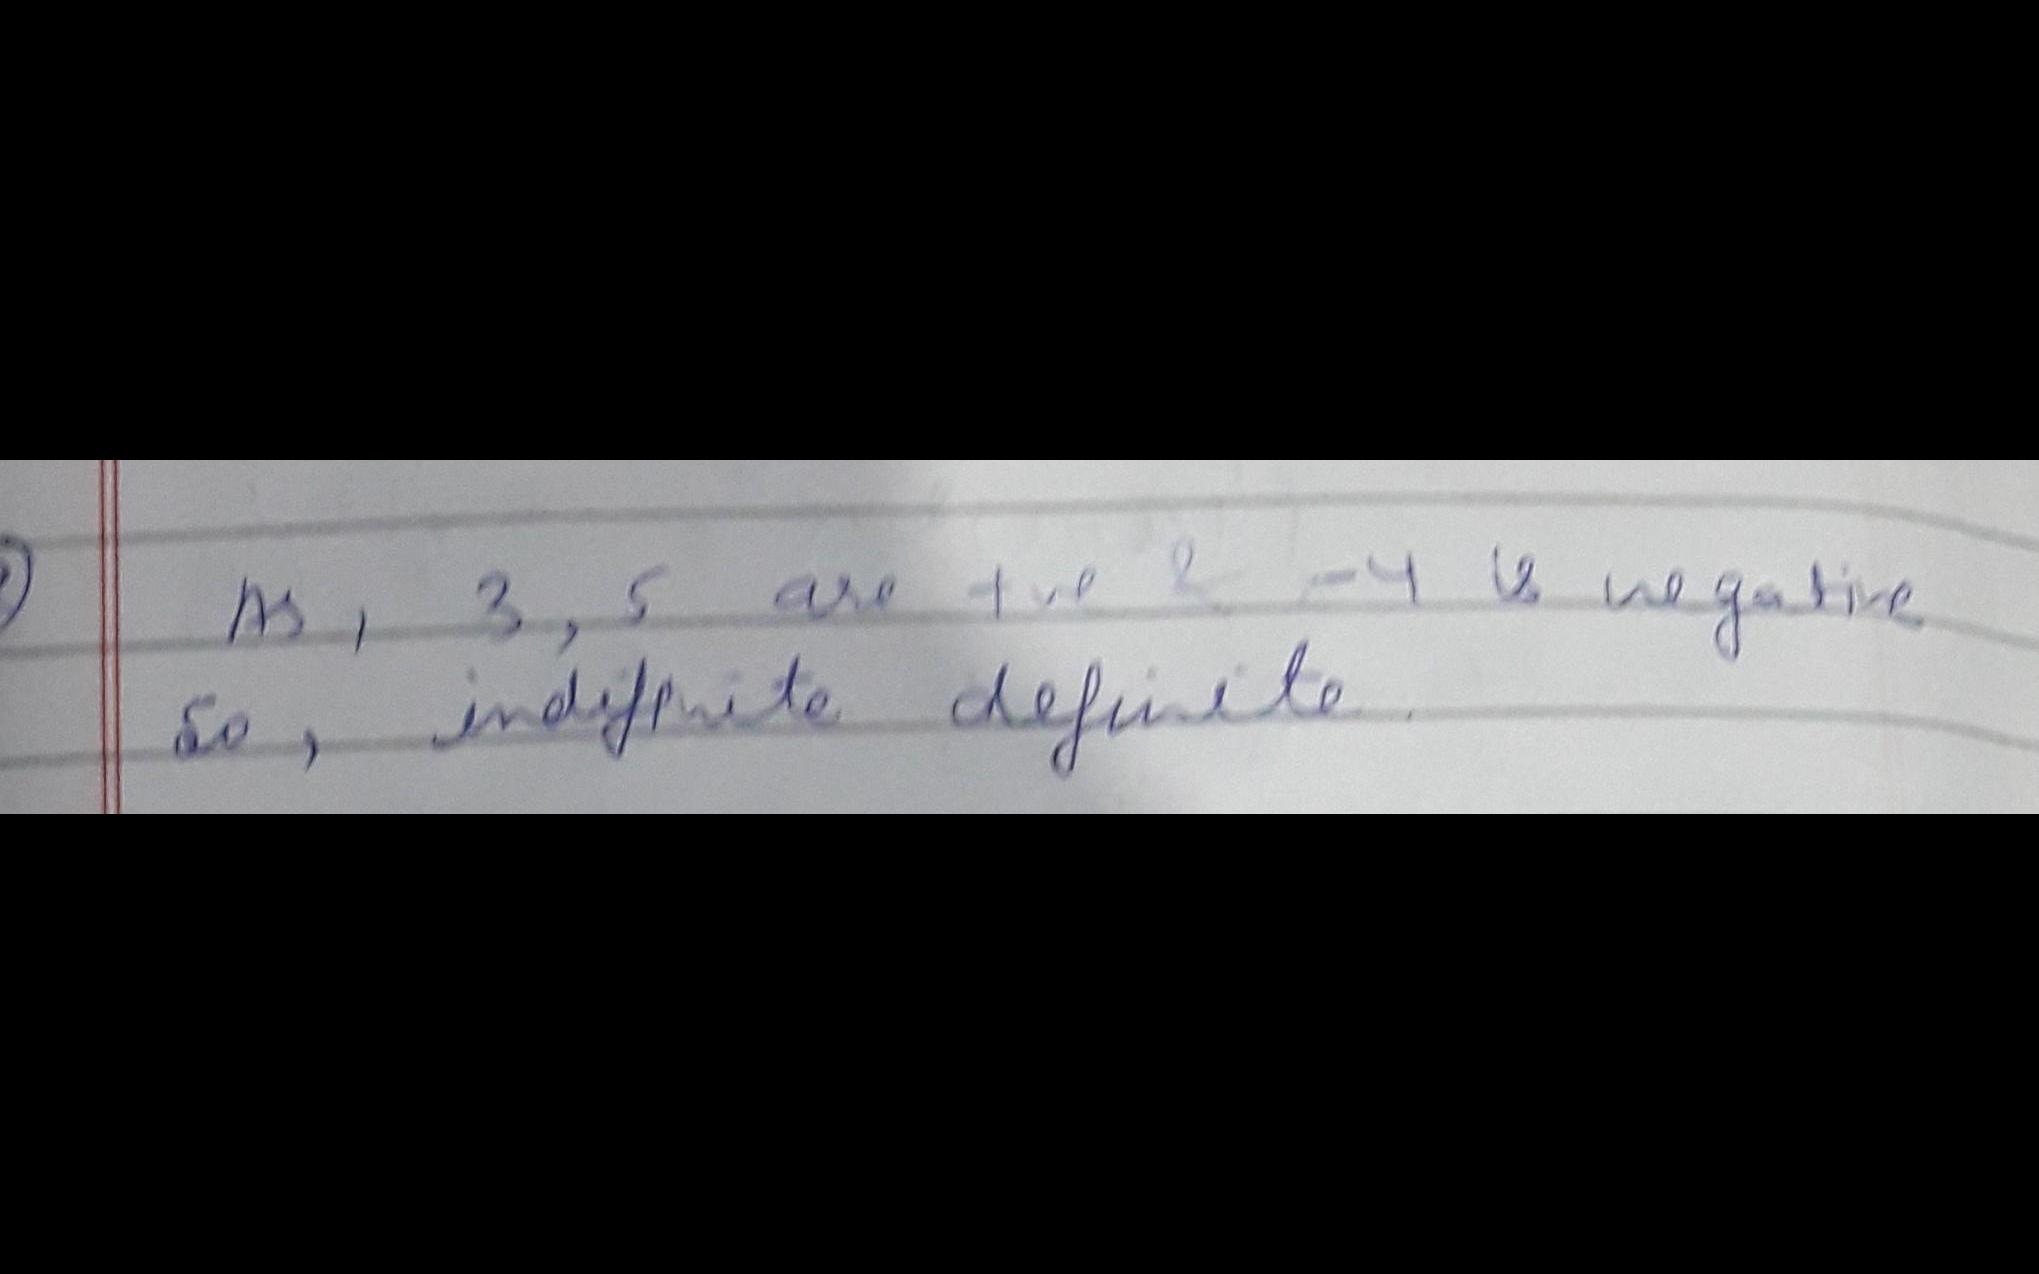 As, 3, 5 are +ve & -4 is negative
So, indifinite definite.